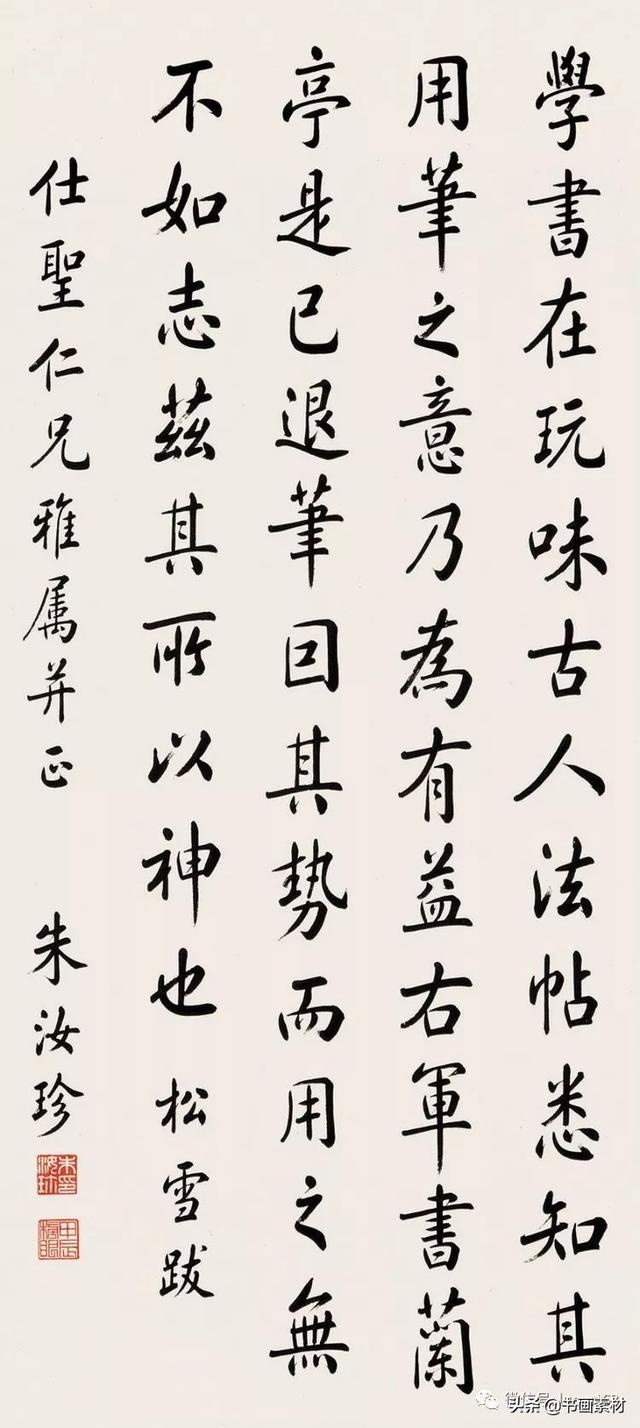 學書在玩味古人法帖悉知其
用筆之意乃為有益右軍書蘭
亭是已退筆因其勢而用之無
不如志茲其所以神也 松雪跋
仕聖仁兄雅属并正 朱汝珍
朱印汝珍
甲辰榜眼
头条@书画素材